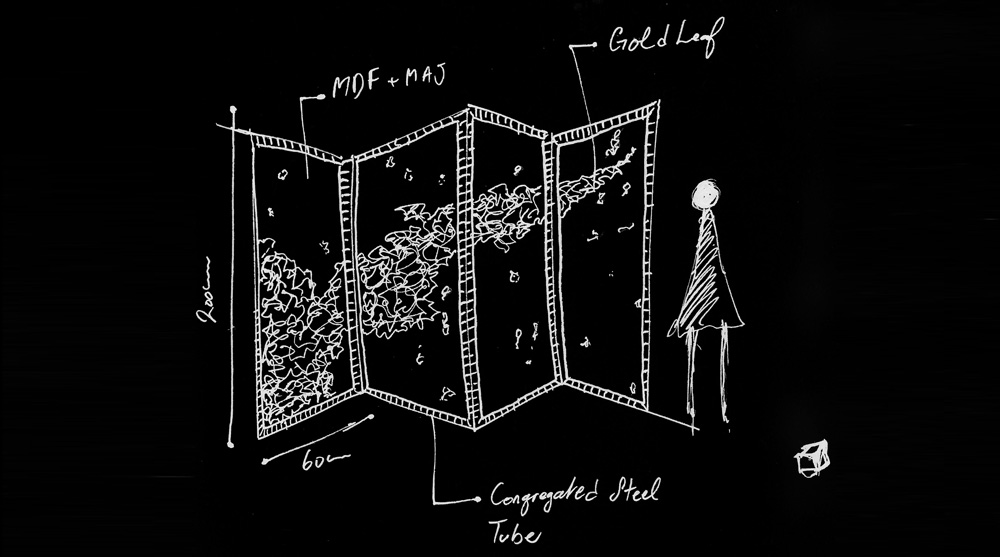 Gold Leaf
MDF + MAJ
200cm
60cm
Congregated Steel
Tube